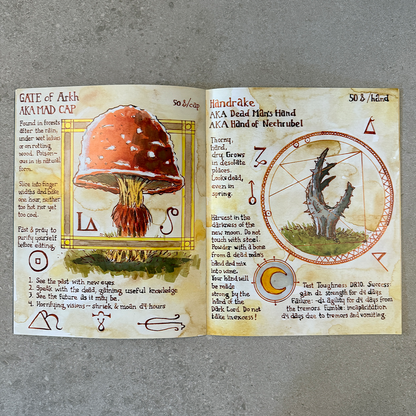 GATE of Arkh
AKA MAD CAP
50 s/cap
Found in forests
after the rain,
under wet leaves
or on rotting
wood. Poison-
ous in its natural
form.
Slice into finger
widths and bake
one hour, neither
too hot nor yet
too cool.
Fast & pray to
purify yourself
before eating.
1. See the past with new eyes
2. Speak with the dead, gaining useful knowledge
3. See the future as it may be.
4. Horrifying visions - shriek & moan d4 hours
Handrake
50 s/hand
AKA Dead Man's Hand
AKA Hand of Nechrubel
Thorny,
hard,
dry. Grows
in desolate
places.
Looks dead,
even in
spring.
Harvest in the
darkness of the
new moon. Do not
touch with steel.
Powder with a bone
from a dead man's
hand and mix
into wine.
Your hand will
be made
strong by the
hand of the
Dark Lord. Do not
take in excess!
Test Toughness DR10. Success:
gain d2 strength for d4 days
Failure: -d2 Agility for d4 days from
the tremors. Fumble: incapacitation
d4 days due to tremors and vomiting.